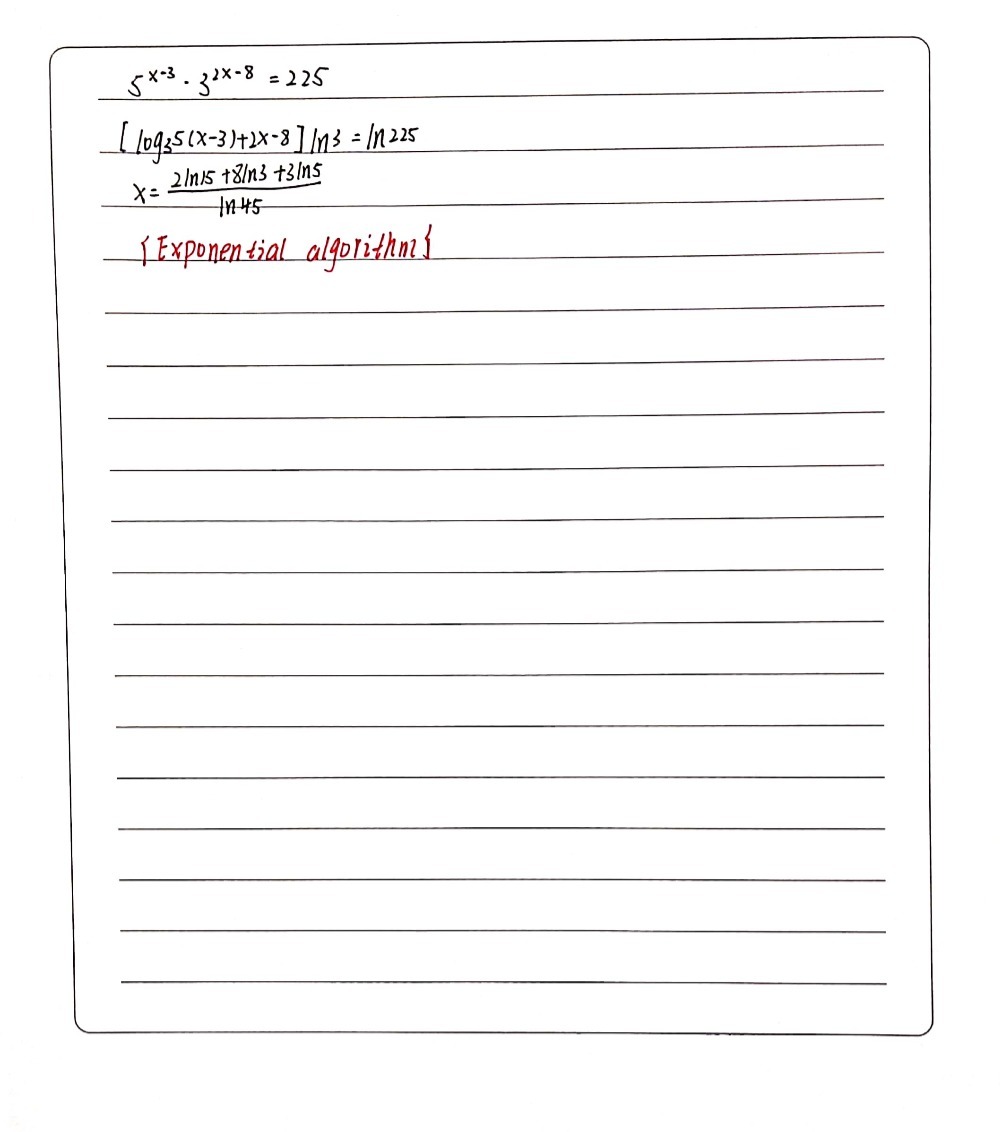 5^{x-3} · 3^{2x-8} = 225
[log₃5(x-3)+2x-8] ln3 = ln225
x = \frac{2ln15 + 8ln3 + 3ln5}{ln45}
{Exponential algorithm}